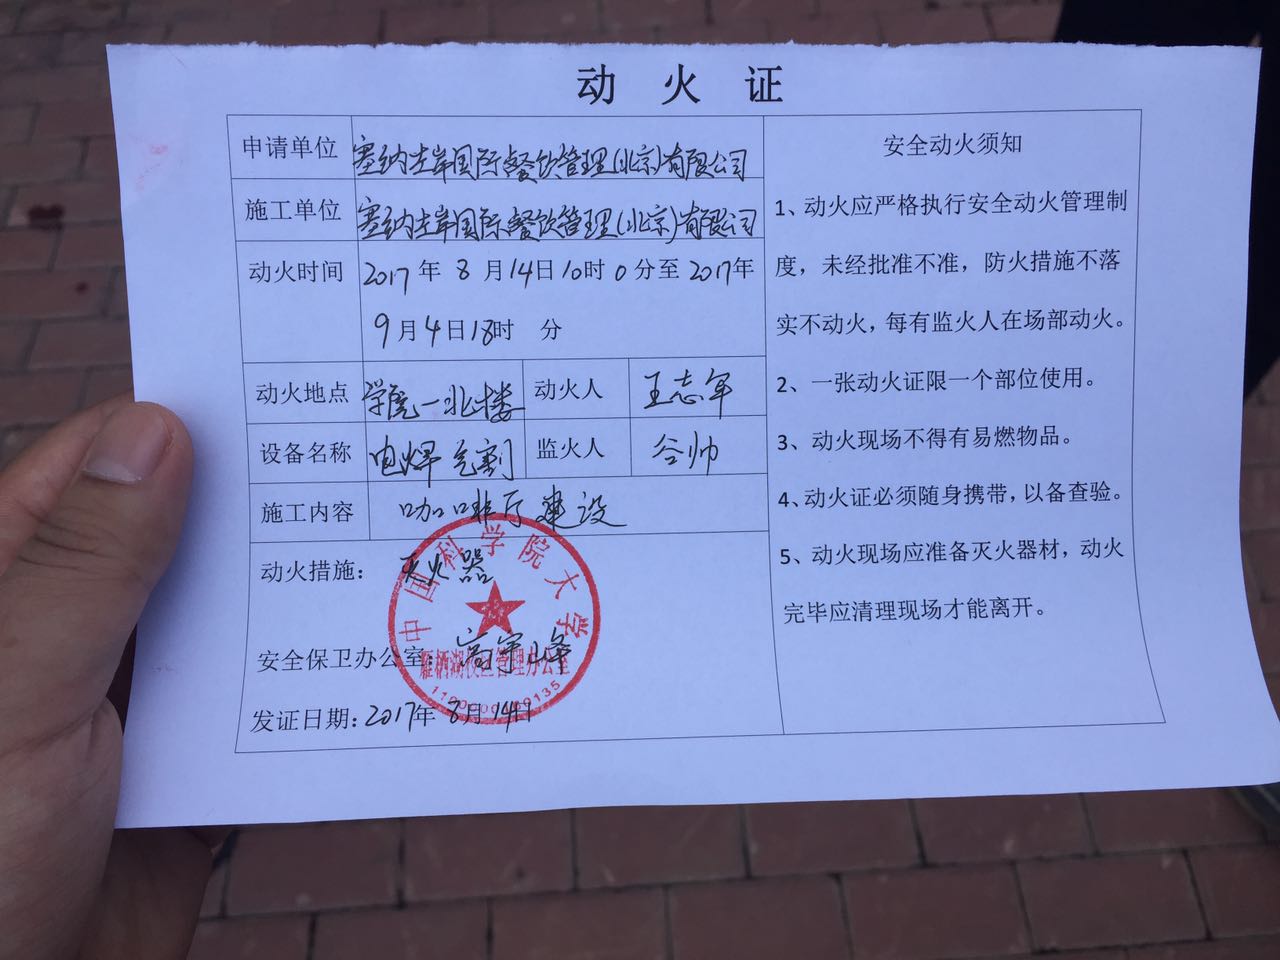 动火证
申请单位 塞纳左岸国际餐饮管理(北京)有限公司
施工单位 塞纳左岸国际餐饮管理(北京)有限公司
动火时间 2017年8月14日10时0分至2017年
9月4日18时 分
动火地点 学苑一北楼 动火人 王志军
设备名称 电焊 气割 监火人 谷帅
施工内容 咖啡厅建设
动火措施： 灭火器
安全保卫办公室：高宇峰
发证日期：2017年8月14日
中国科学院大学
雁栖湖校区管理办公室
安全动火须知
1、动火应严格执行安全动火管理制
度，未经批准不准，防火措施不落
实不动火，每有监火人在场部动火。
2、一张动火证限一个部位使用。
3、动火现场不得有易燃物品。
4、动火证必须随身携带，以备查验。
5、动火现场应准备灭火器材，动火
完毕应清理现场才能离开。